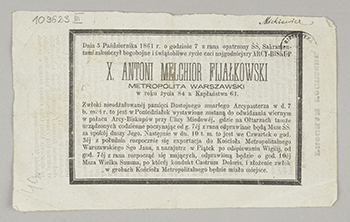 109523 III
Dnia 5 Października 1861 r. o godzinie 7 z rana opatrzony SS. Sakramen-
tami zakończył bogobojne i świątobliwe życie nasz najgodniejszy ARCY-BISKUP
X. ANTONI MELCHIOR FIJAŁKOWSKI
METROPOLITA WARSZAWSKI
w roku życia 84 a Kapłaństwa 61.
Zwłoki nieodżałowanej pamięci Dostojnego zmarłego Arcypasterza w d. 7
b. m. i r. to jest w Poniedziałek wystawione zostaną do odwidzania wiernym
w pałacu Arcy-Biskupów przy Ulicy Miodowéj, gdzie na Ołtarzach tamże
urządzonych codziennie poczynając od g. 7éj z rana odprawiane będą Msze SS.
za spokój duszy Jego. Następnie w dn. 10 t. m. to jest we Czwartek o god.
3éj z południa rozpocznie się exportacya do Kościoła Metropolitalnego
Warszawskiego Sgo Jana, a nazajutrz w Piątek po odśpiewaniu Wigilij, od
god. 7éj z rana rozpocząć się mających, odprawioną będzie o god. 10éj
Msza Wielka Summa, po któréj kondukt Castrum Doloris, i złożenie zwłok
w grobach Kościoła Metropolitalnego będzie miało miejsce.